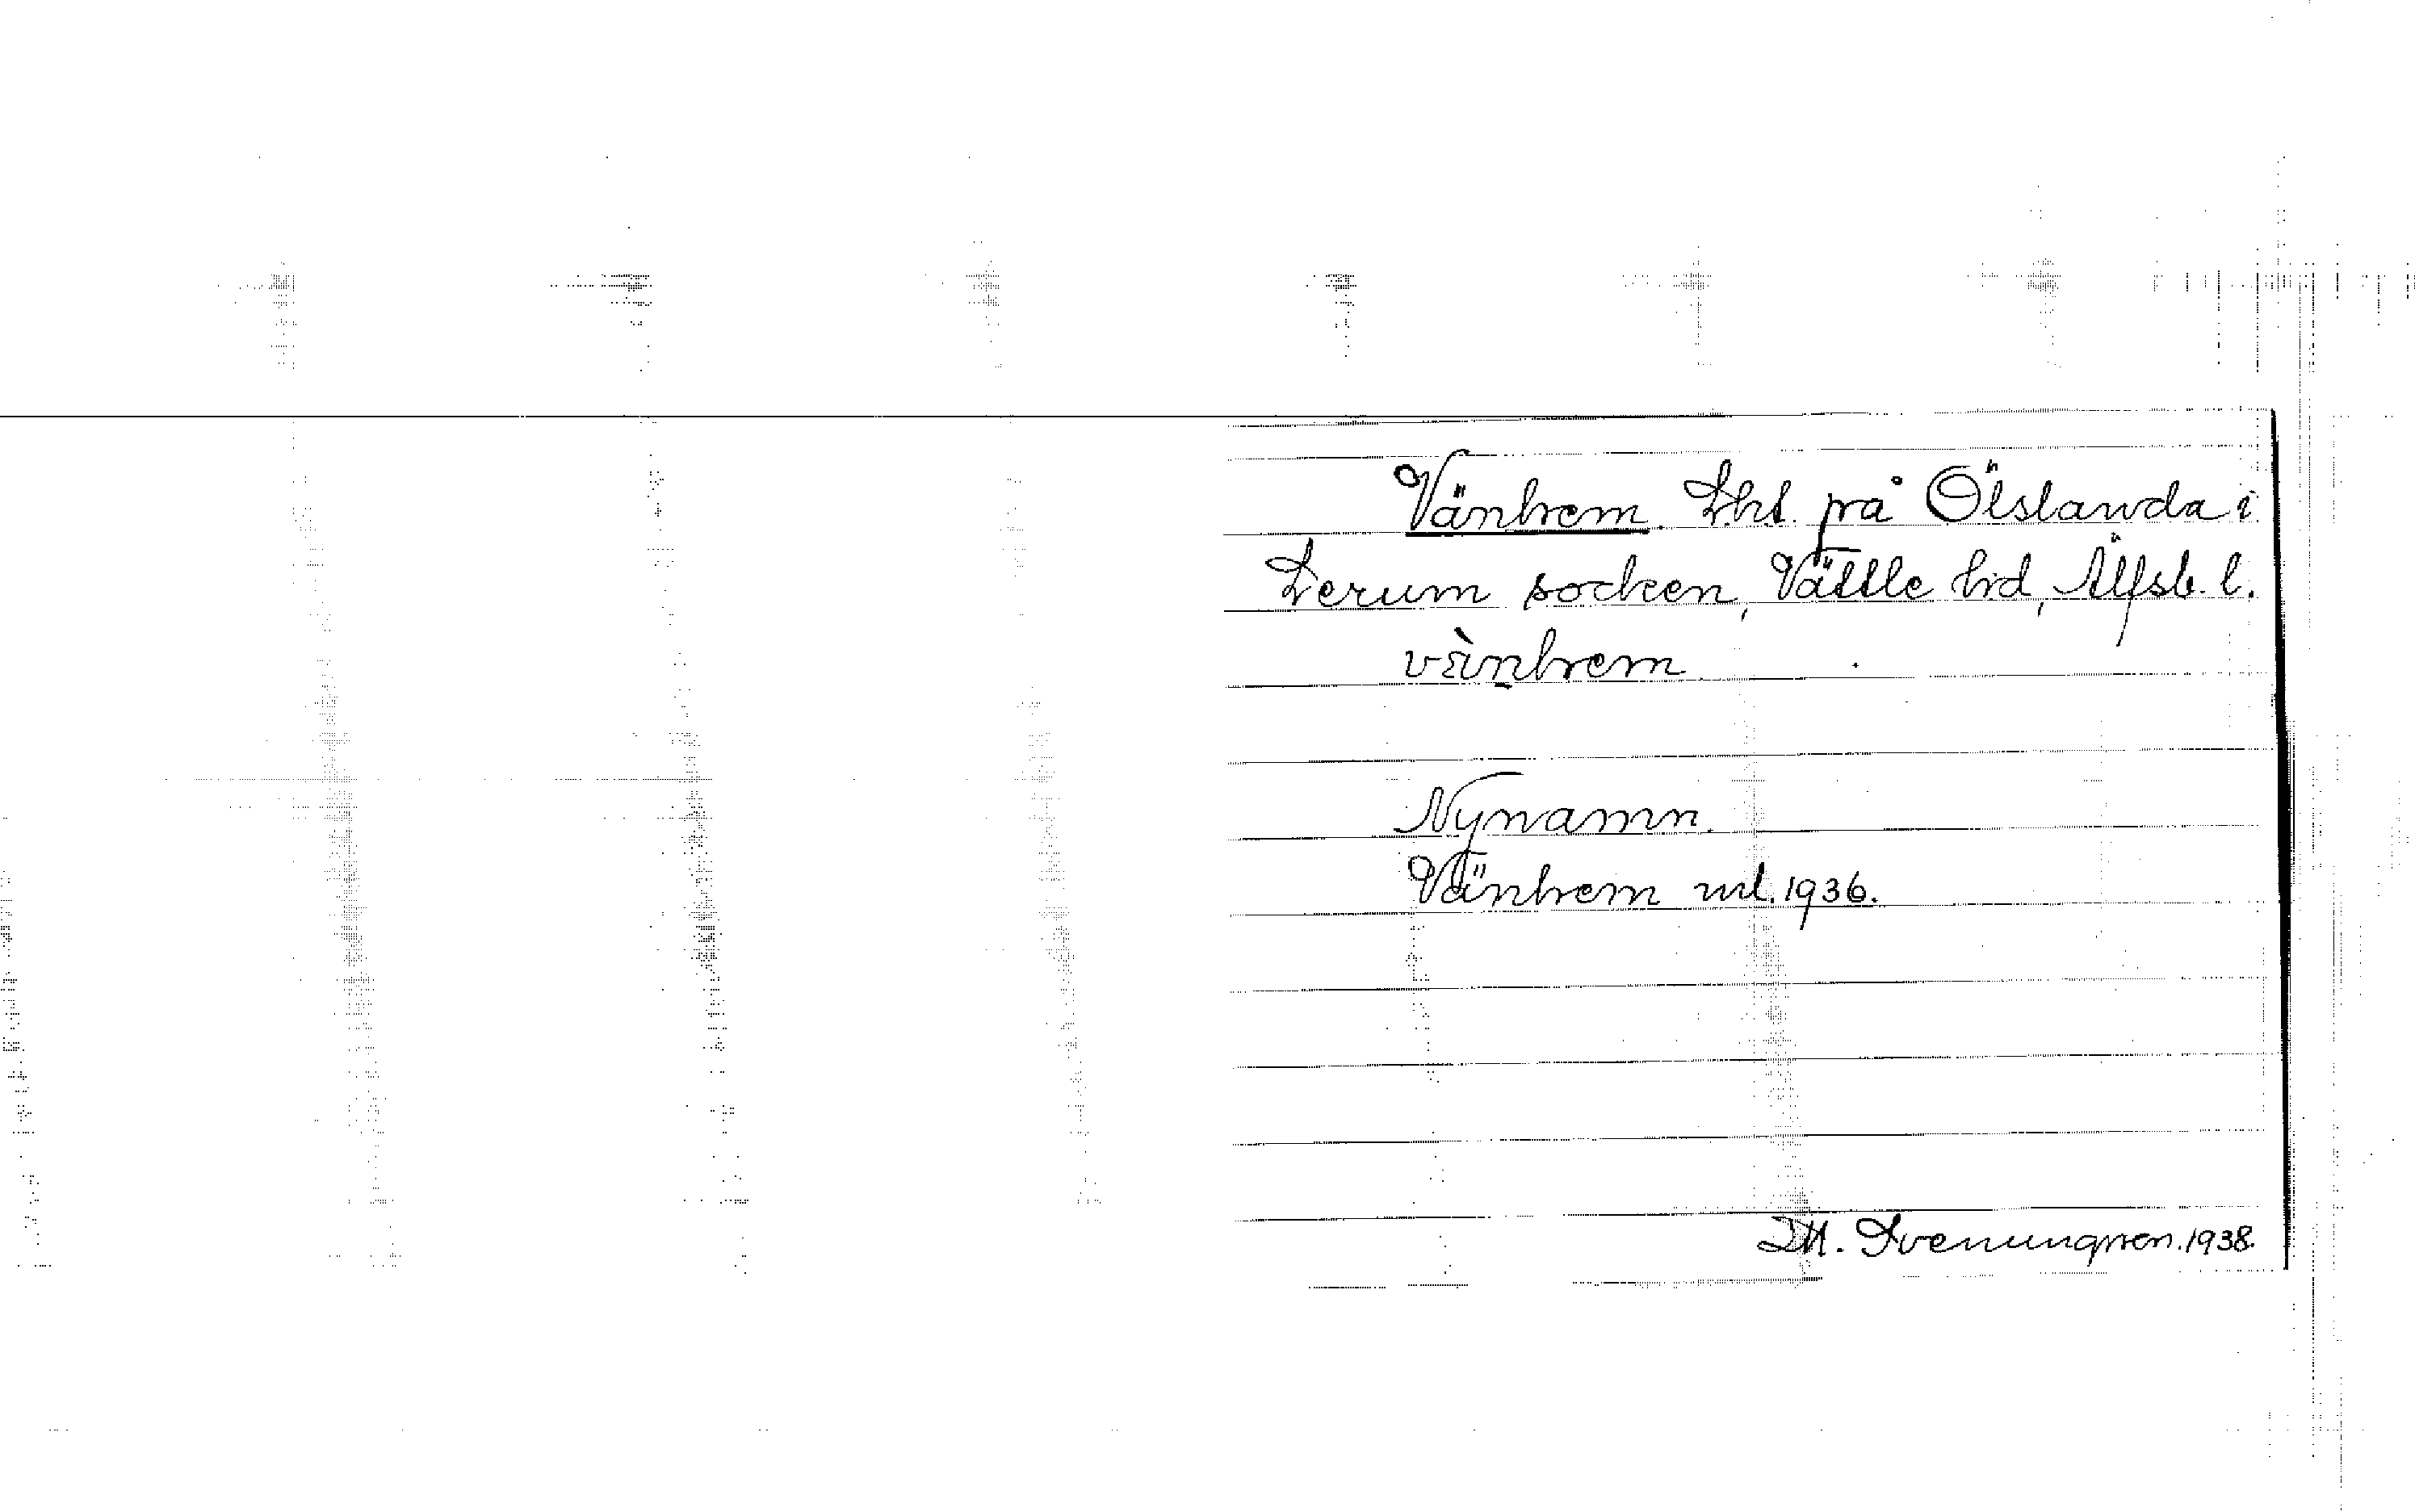 Vänhem. Lht. på Ölslanda i
Lerum socken, Vättle hd, Älfsb. l.
vä̀nhem
Nynamn.
Vänhem ml. 1936.
D.H. Svenungsson. 1938.